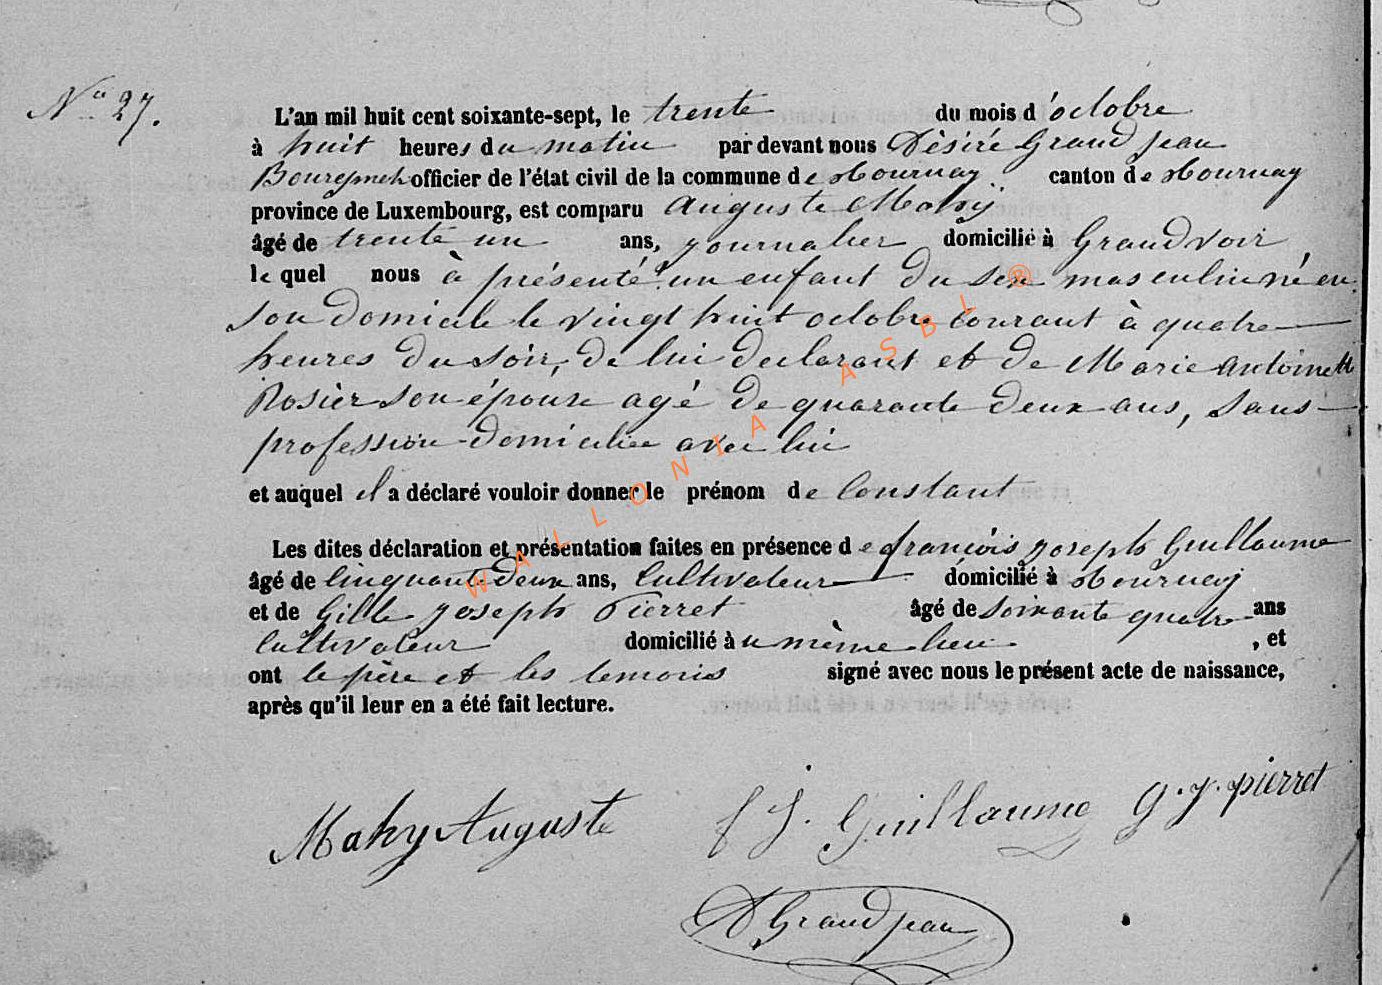 No 27.
L'an mil huit cent soixante-sept, le trente du mois d'octobre
à huit heures du matin par devant nous Désiré Grandjean
Bourgmeh officier de l'état civil de la commune de Tournay canton de Tournay
province de Luxembourg, est comparu Auguste Mahy
âgé de trente un ans, journalier domicilié à Grandvoir
lequel nous à présenté un enfant du sexe masculin né en
son domicile le vingt huit octobre courant à quatre
heures du soir, de lui declarant et de Marie Antoinette
Rosièr son épouse agé de quarante deux ans, sans
profession domiciliée avec lui
et auquel il a déclaré vouloir donner le prénom de Constant
Les dites déclaration et présentation faites en présence de françois joseph Guillaume
âgé de Cinquante Deux ans, Cultivateur domicilié à Tournay
et de Gille joseph Pierret âgé de soixante quatre ans
Cultivateur domicilié àu même lieu , et
ont le père et les temoins signé avec nous le présent acte de naissance,
après qu'il leur en a été fait lecture.
Mahy Auguste f J. Guillaume g. j. pierret
D Grandjean
WALLONIA ASBL ®